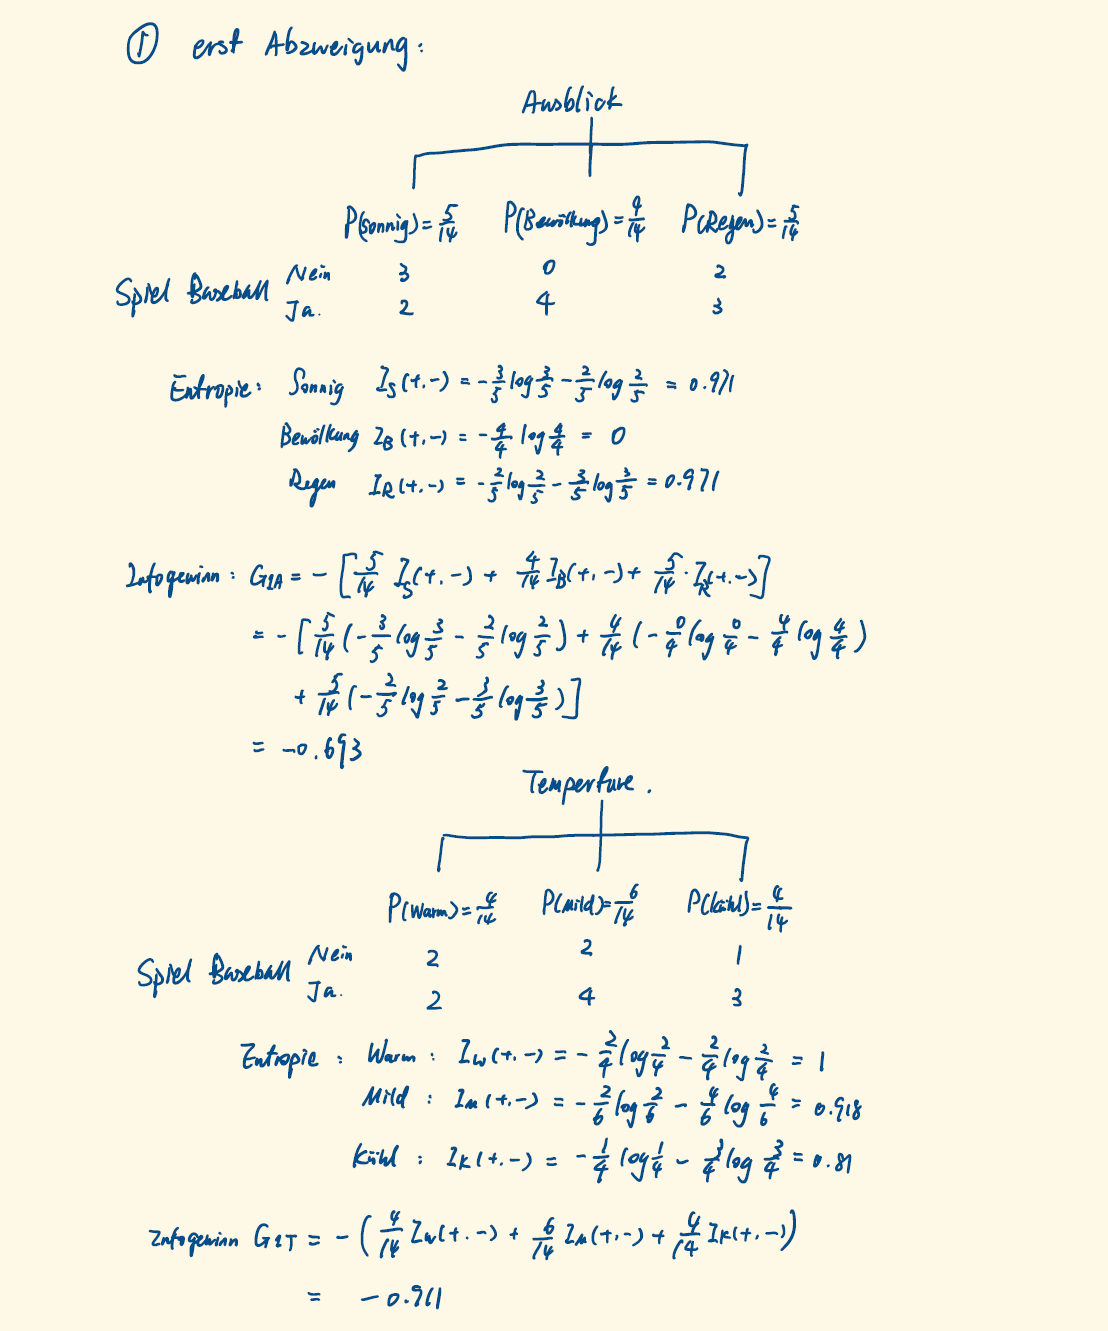 ① erst Abzweigung:
Ausblick
P(sonnig)=5/14 P(Bewölkung)=4/14 P(Regen)=5/14
Spiel Baseball Nein 3 0 2
Ja. 2 4 3
Entropie: Sonnig I_S(+,-) = -3/5 log 3/5 - 2/5 log 2/5 = 0.971
Bewölkung I_B(+,-) = -4/4 log 4/4 = 0
Regen I_R(+,-) = -2/5 log 2/5 - 3/5 log 3/5 = 0.971
Infogewinn: G_1A = -[5/14 I_S(+,-) + 4/14 I_B(+,-) + 5/14 · I_R(+,-)]
= -[5/14 (-3/5 log 3/5 - 2/5 log 2/5) + 4/14 (-0/4 log 0/4 - 4/4 log 4/4)
+ 5/14 (-2/5 log 2/5 - 3/5 log 3/5)]
= -0.693
Temperture.
P(Warm)=4/14 P(Mild)=6/14 P(kühl)=4/14
Spiel Baseball Nein 2 2 1
Ja. 2 4 3
Entropie: Warm: I_W(+,-) = -2/4 log 2/4 - 2/4 log 2/4 = 1
Mild: I_M(+,-) = -2/6 log 2/6 - 4/6 log 4/6 = 0.918
Kühl: I_K(+,-) = -1/4 log 1/4 - 3/4 log 3/4 = 0.81
Infogewinn G_1T = -(4/14 I_W(+,-) + 6/14 I_M(+,-) + 4/14 I_K(+,-))
= -0.911